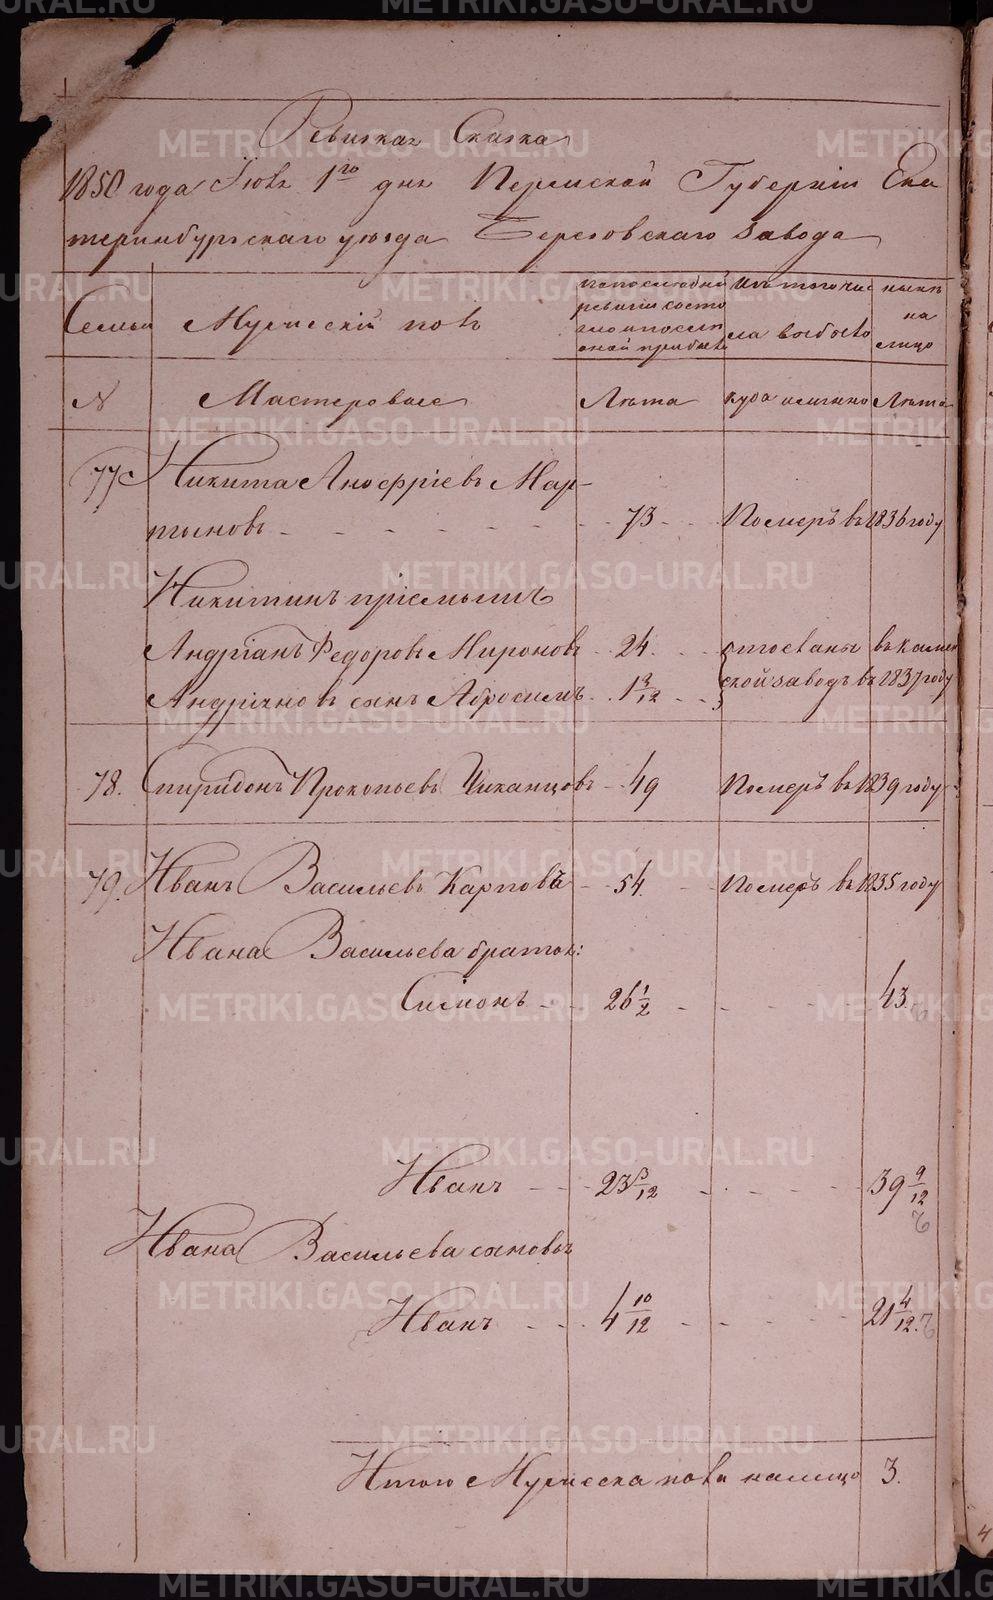 Ревизкая Сказка
1850 года Июня 1го дня Пермской Губернии Ека
теринбургскаго уезда Березовскаго завода
Семьи
Мужескій полъ
по последней
ревизіи состо
яло и после
оной прибыло
изъ того чис
ла выбыло
ныне
на
лицо
N
Мастеровые
Лѣта
куда именно
Лѣта
77
Никита Анофріевъ Мар-
тыновъ - - - 73 - - Померъ въ 1836 году
Никитинъ пріемышъ
Андріянъ Федоровъ Мироновъ 24. отосланы въ Камен
Андріяновъ сынъ Абросимъ 1 3/12 ской заводъ въ 1837 году
78. Спиридонъ Прокопьевъ Чиканцовъ 49 Померъ въ 1839 году
79. Иванъ Васильевъ Карповъ - 54. - Померъ въ 1835 году
Ивана Васильева братья:
Симионъ - - 26 1/2 - - - 43.
Иванъ - - 23 3/12 - - - 39 9/12
Ивана Васильева сыновья
Иванъ - - 4 10/12 - - - 21 4/12.
Итого Мужеска пола налицо 3.
METRIKI.GASO-URAL.RU